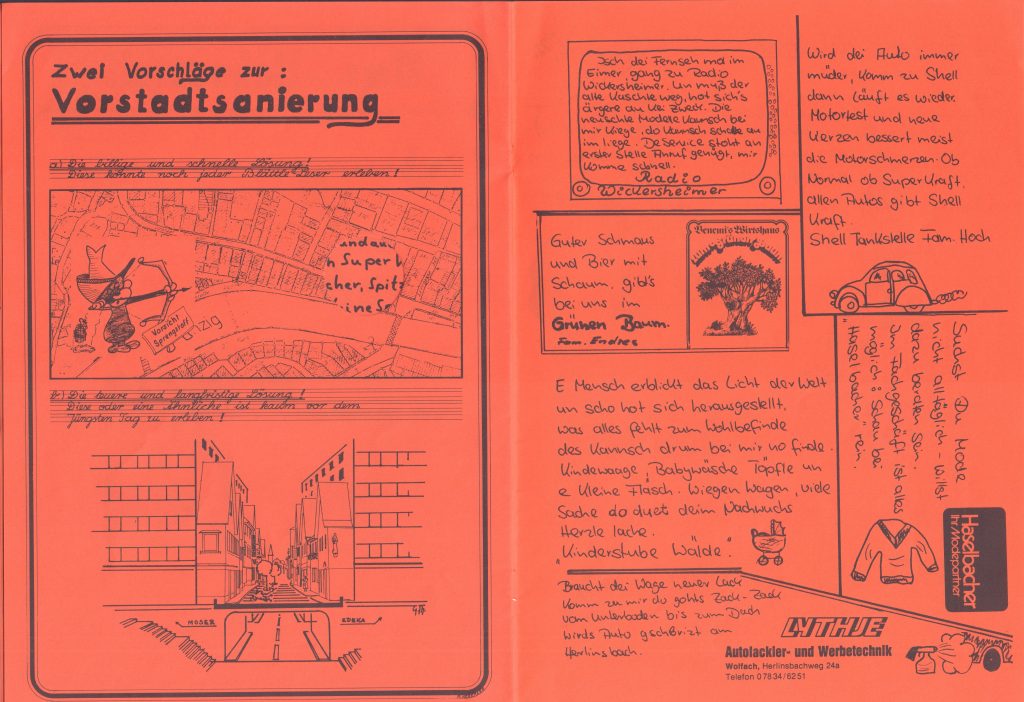 Zwei Vorschläge zur:
Vorstadtsanierung
a) Die billige und schnelle Lösung!
Diese könnte noch jeder Blättle-Leser erleben!
und au
n Super b
cher, Spitz
ine Se
Vorsicht
Sprengstoff
zig
b) Die teuere und langfristige Lösung!
Diese oder eine ähnliche ist kaum vor dem
Jüngsten Tag zu erleben!
MOSER
EDEKA
Isch dei Fernseh mal im
Eimer, gang zu Radio
Wickersheimer. Un muß der
alte Kaschte weg, hot sich's
ärgere au kei Zweck. Die
neuschte Modele kannsch bei
mir kriege, do kannsch schalte au
im liege. De Service stoht an
erster Stelle Anruf genügt, mir
komme schnell.
Radio
Wickersheimer
Wird dei Auto immer
müder, komm zu Shell
dann läuft es wieder.
Motortest und neue
Kerzen bessert meist
die Motorschmerzen. Ob
Normal ob Super Kraft,
allen Autos gibt Shell
Kraft.
Shell Tankstelle Fam. Hoch
Guter Schmaus
und Bier mit
Schaum, gibt's
bei uns im
Grünen Baum.
Fam. Endres
Benemi's Wirtshaus
Suchst Du Mode
nicht alltäglich - willst
daran beraten sein.
Im Fachgeschäft ist alles
möglich: Schau bei
"Haselbacher" rein.
Haselbacher
Ihr Modepartner
E Mensch erblickt das Licht der Welt
un scho hot sich herausgestellt,
was alles fehlt zum Wohlbefinde
des kannsch drum bei mir no finde.
Kindewaage, Babywäsche Töpfle un
e kleine Fläsch. Wiegen Wagen, viele
Sache do duet deim Nachwuchs
Herzle lache.
"Kinderstube Wälde."
Braucht dei Wage neuer Lack
komm zu mir do gohts Zack-Zack
vom Unterboden bis zum Dach
wirds Auto gschbrizt am
Herlinsbach.
LYTHJE
Autolackier- und Werbetechnik
Wolfach, Herlinsbachweg 24a
Telefon 0 78 34 / 62 51